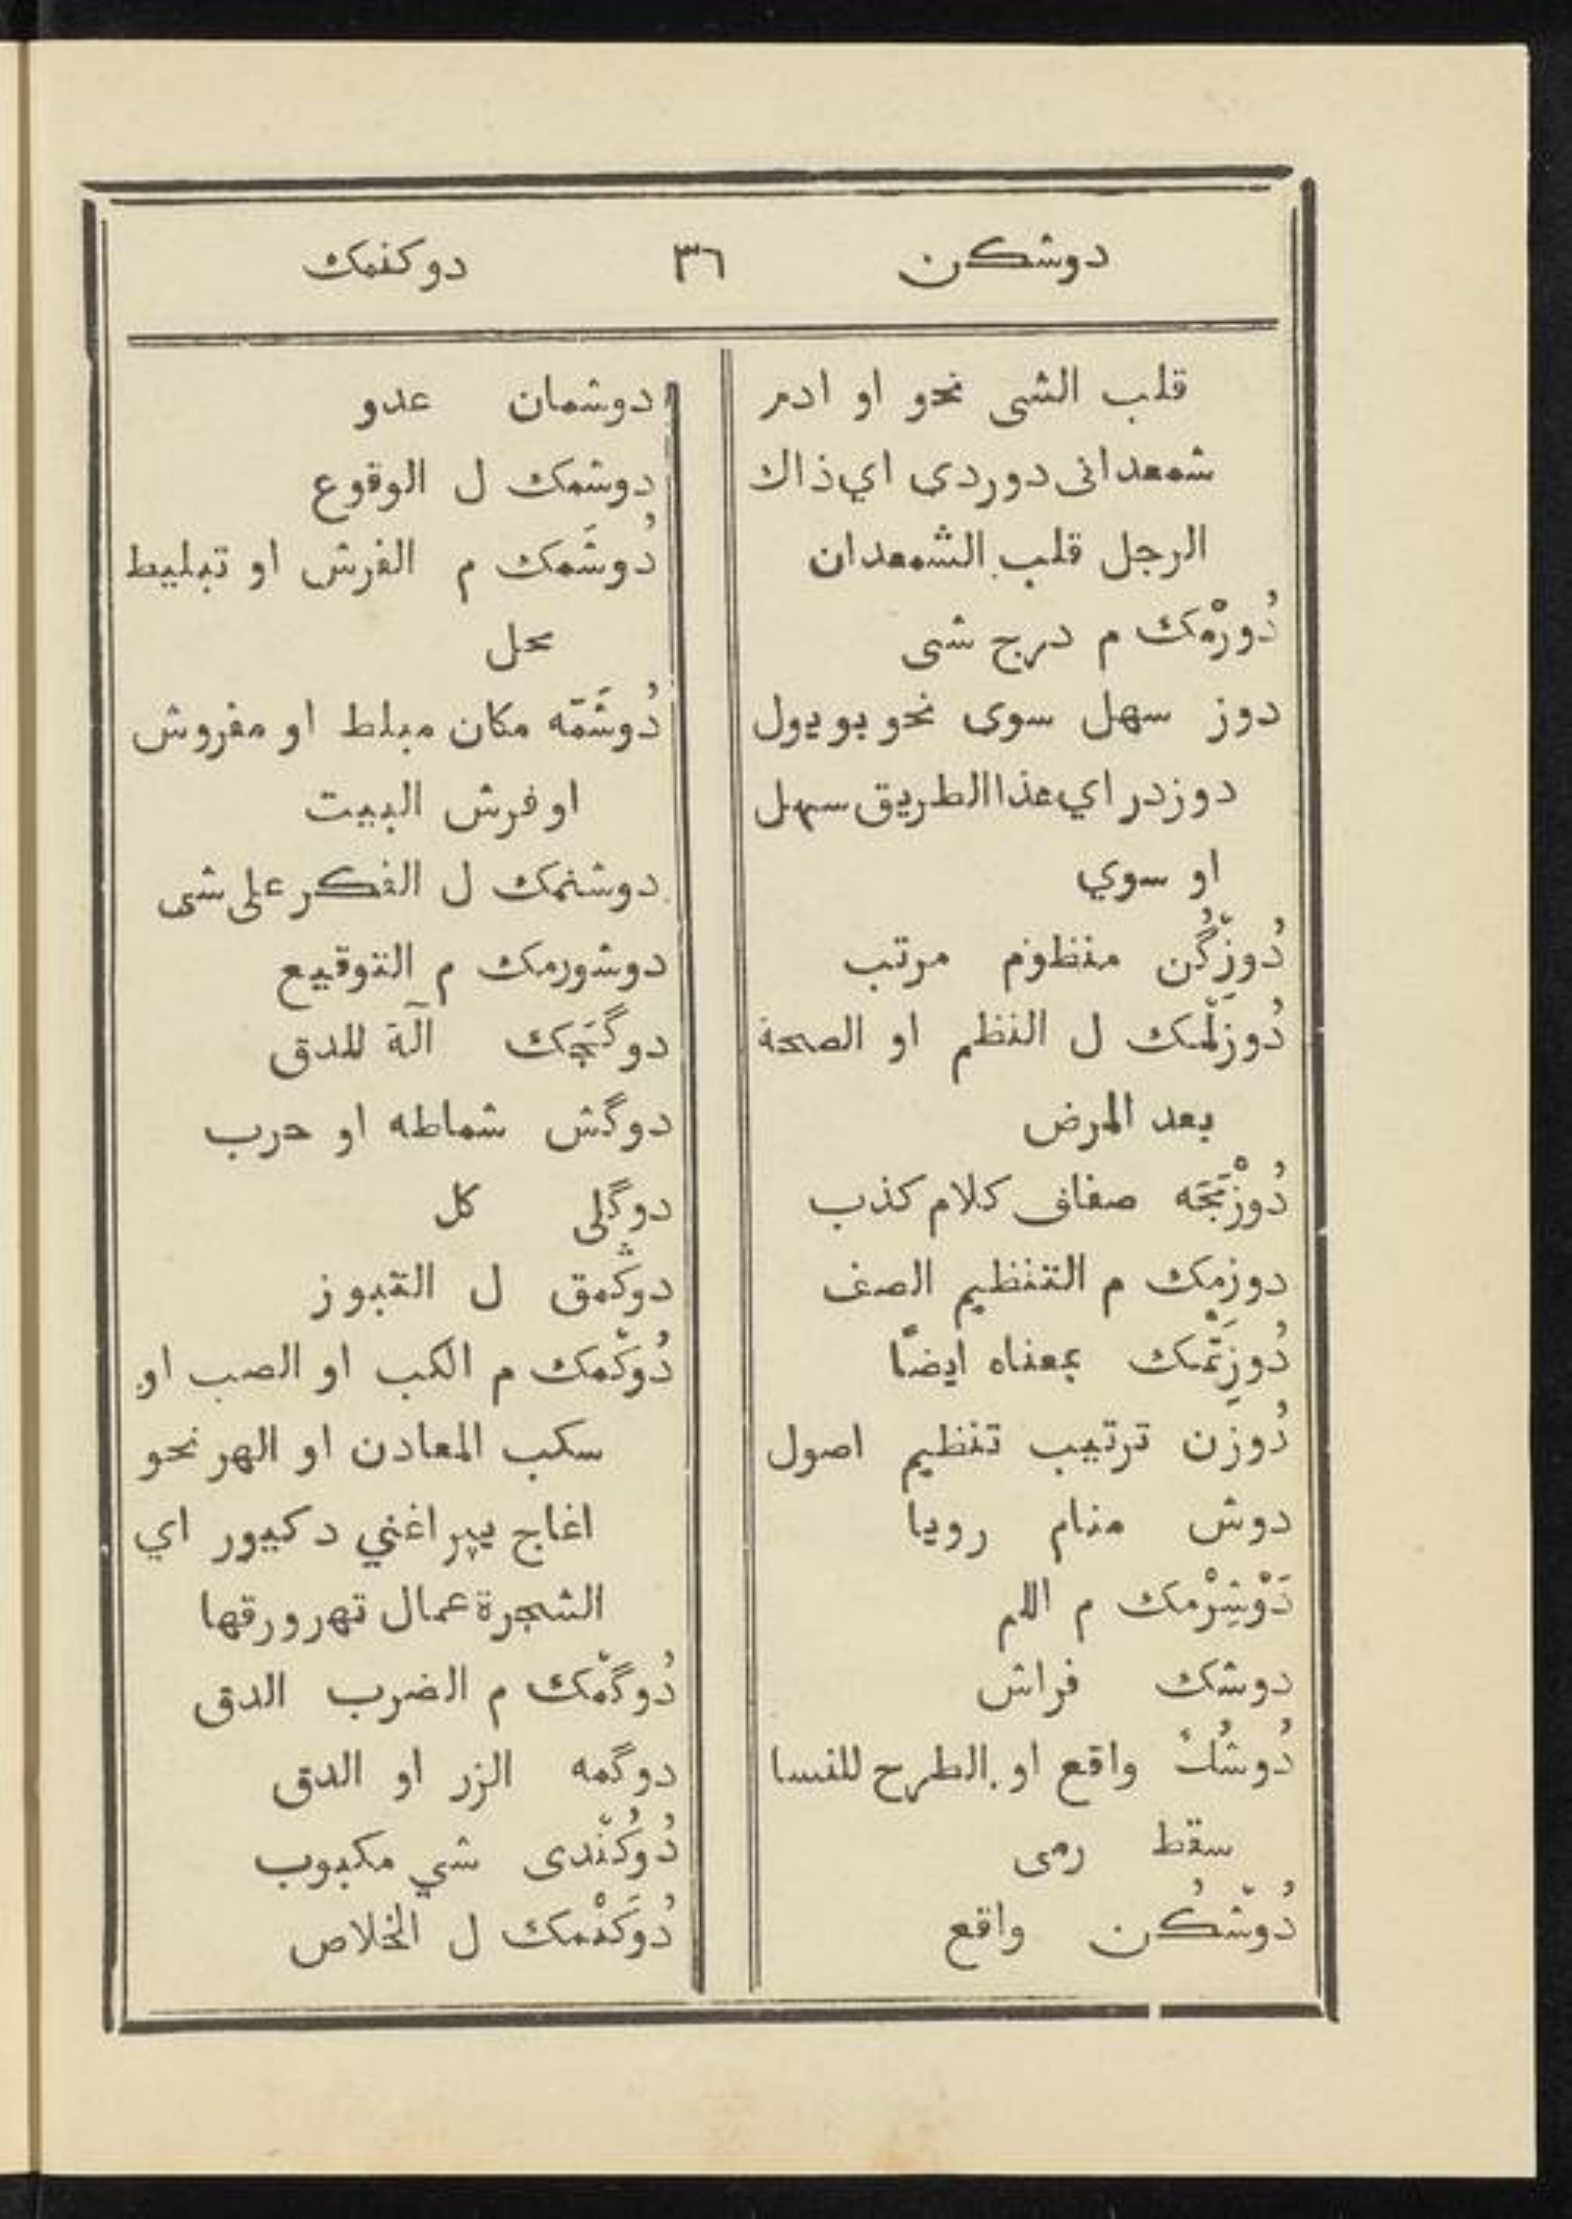 دوشكن ٣٦ دوكنمك
قلب الشى نحو او ادم
شمعدانى دوردى اي ذاك
الرجل قلب الشمعدان
دُورْمك م درج شى
دوز سهل سوى نحو بو يول
دوزدر اي هذا الطريق سهل
او سوي
دُوزّكُن منظوم مرتب
دُوزَلّمك ل النظم او الصحة
بعد المرض
دُوزْمَجَه صفاف كلام كذب
دوزمك م التنظيم الصف
دُوزِتّمك بمعناه ايضًا
دُوزن ترتيب تنظيم اصول
دوش منام رويا
دَوْشِرْمك م اللم
دوشك فراش
دُوشُكْ واقع او الطرح للنسا
سقط رمى
دُوشّكُن واقع
دوشمان عدو
دوشمك ل الوقوع
دُوشَمك م الفرش او تبليط
محل
دُوشَمّه مكان مبلط او مفروش
او فرش البيت
دوشنمك ل الفكر على شى
دوشورمك م التوقيع
دوگَجَك آلة للدق
دوگش شماطه او حرب
دوگلى كل
دوڭمق ل التبوز
دُوكّمك م الكب او الصب او
سكب المعادن او الهر نحو
اغاج يپراغني دكيور اي
الشجرة عمال تهر ورقها
دُوگمّك م الضرب الدق
دوگمه الزر او الدق
دُوكُنّدى شي مكبوب
دُوكَنْمك ل الخلاص